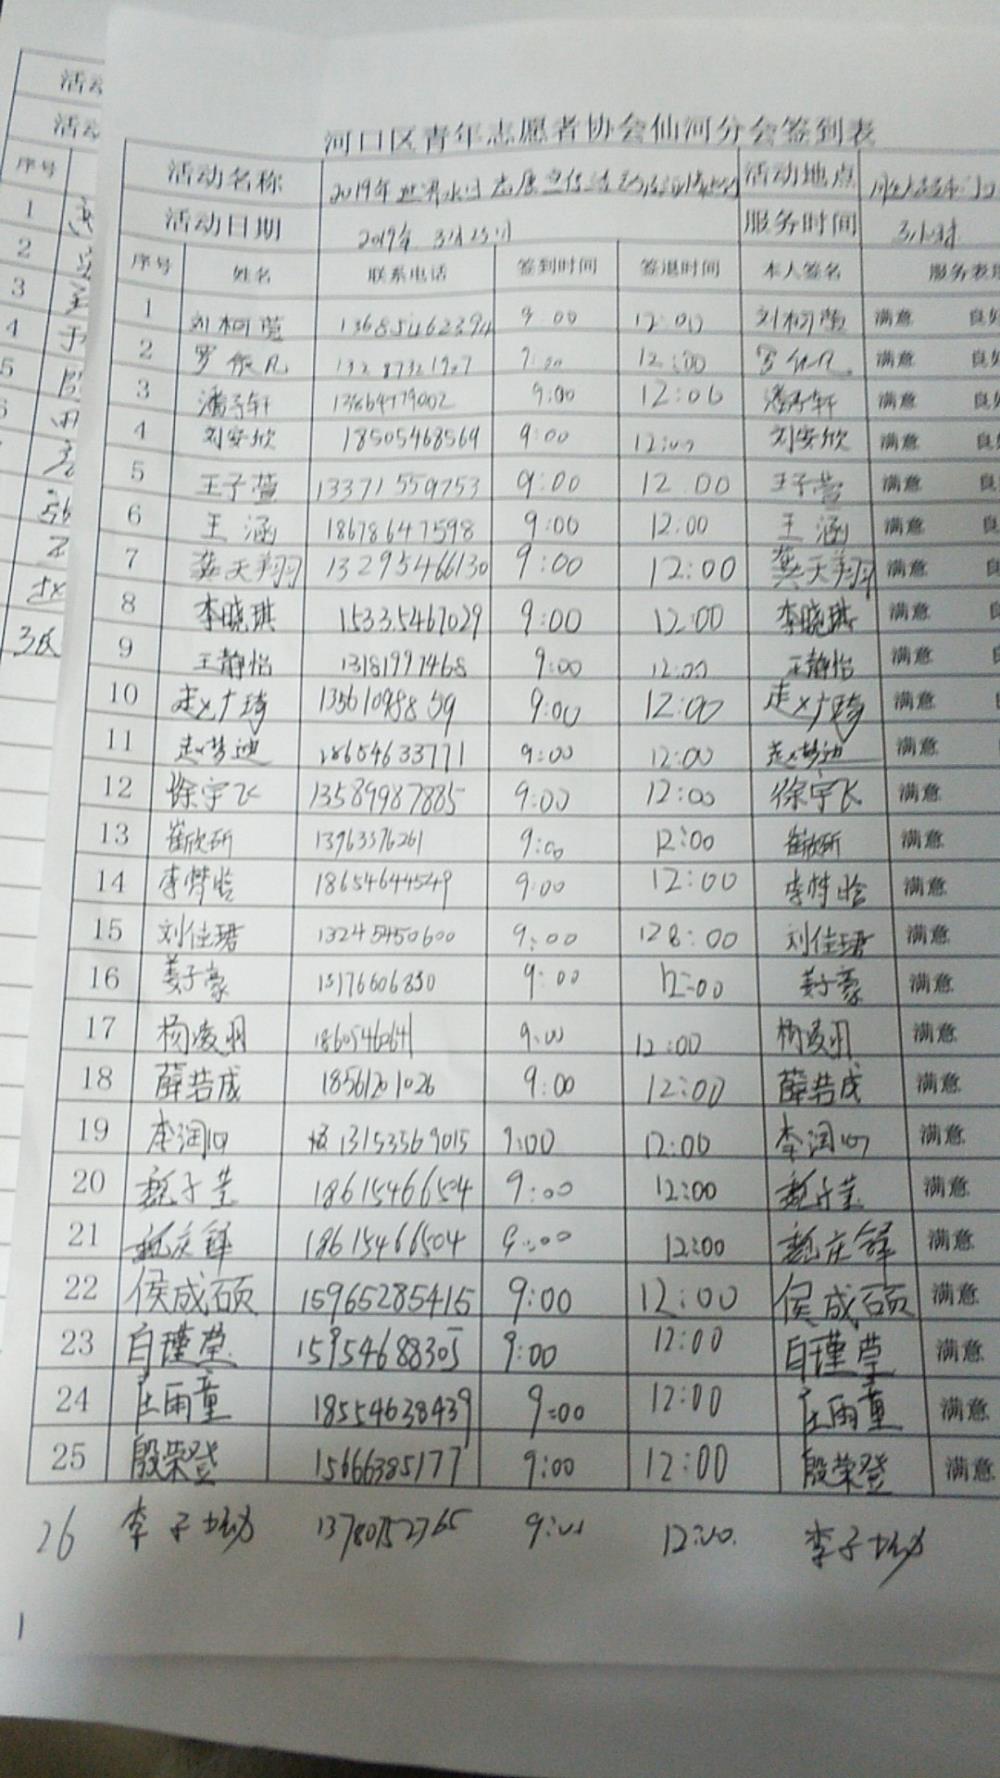 河口区青年志愿者协会仙河分会签到表
活动名称 2019年世界水日志愿宣传活动 活动地点
活动日期 2019年3月23日 服务时间 3小时
序号 姓名 联系电话 签到时间 签退时间 本人签名 服务表现
1 刘柯萱 13685462394 9:00 12:00 刘柯萱 满意 良好
2 罗依凡 13287321907 9:00 12:00 罗依凡 满意 良好
3 潘子轩 13864779002 9:00 12:00 潘子轩 满意 良好
4 刘安欣 18505468569 9:00 12:00 刘安欣 满意 良好
5 王子萱 13371559753 9:00 12:00 王子萱 满意 良
6 王涵 18678647598 9:00 12:00 王涵 满意 良
7 龚天翔 13295466130 9:00 12:00 龚天翔 满意 良
8 李晓琪 15335467029 9:00 12:00 李晓琪 满意
9 王静怡 13181997468 9:00 12:00 王静怡 满意
10 赵广琦 13561098859 9:00 12:00 赵广琦 满意
11 赵梦迪 18654633771 9:00 12:00 赵梦迪 满意
12 徐宇飞 13589987885 9:00 12:00 徐宇飞 满意
13 崔欣研 13963376261 9:00 12:00 崔欣研 满意
14 李梦晗 18654644549 9:00 12:00 李梦晗 满意
15 刘佳珺 13245450600 9:00 128:00 刘佳珺 满意
16 姜子豪 15176606830 9:00 12:00 姜子豪 满意
17 杨凌羽 18605460641 9:00 12:00 杨凌羽 满意
18 薛若成 18561201026 9:00 12:00 薛若成 满意
19 李润 13153569015 9:00 12:00 李润 满意
20 魏子莹 18615466504 9:00 12:00 魏子莹 满意
21 魏庆锋 18615466504 9:00 12:00 魏庆锋 满意
22 侯成硕 15965285415 9:00 12:00 侯成硕 满意
23 白瑾莹 15954688305 9:00 12:00 白瑾莹 满意
24 任雨童 18554638439 9:00 12:00 任雨童 满意
25 殷荣登 15666385177 9:00 12:00 殷荣登 满意
26 李子坳 13780752765 9:00 12:00. 李子坳